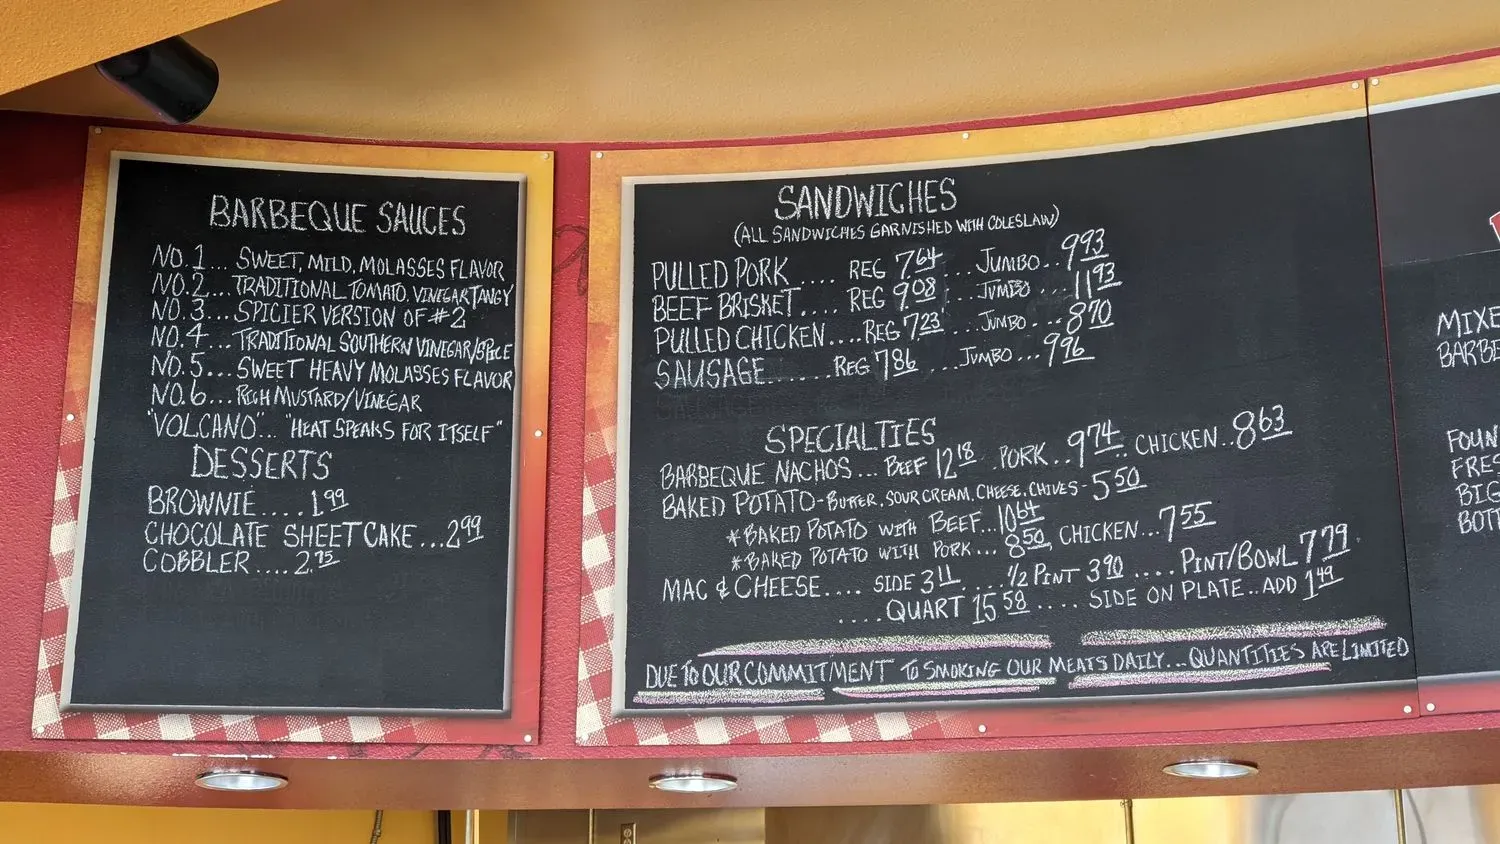 BARBEQUE SAUCES
NO. 1... SWEET, MILD, MOLASSES FLAVOR
NO. 2... TRADITIONAL TOMATO, VINEGAR TANGY
NO. 3... SPICIER VERSION OF #2
NO. 4... TRADITIONAL SOUTHERN VINEGAR/SPICE
NO. 5... SWEET HEAVY MOLASSES FLAVOR
NO. 6... RICH MUSTARD/VINEGAR
"VOLCANO"... "HEAT SPEAKS FOR ITSELF"
DESSERTS
BROWNIE.... 1.99
CHOCOLATE SHEET CAKE... 2.99
COBBLER.... 2.75
SANDWICHES
(ALL SANDWICHES GARNISHED WITH COLESLAW)
PULLED PORK .... REG 7.64 ... JUMBO... 9.93
BEEF BRISKET.... REG 9.08 ... JUMBO ... 11.93
PULLED CHICKEN.... REG 7.23 ... JUMBO ... 8.70
SAUSAGE...... REG 7.86 ... JUMBO... 9.96
SPECIALTIES
BARBEQUE NACHOS... BEEF 12.18 . PORK.. 9.74 . CHICKEN.. 8.63
BAKED POTATO - BUTTER, SOUR CREAM, CHEESE, CHIVES - 5.50
*BAKED POTATO WITH BEEF... 10.64
*BAKED POTATO WITH PORK... 8.50, CHICKEN... 7.55
MAC & CHEESE.... SIDE 3.11 .... 1/2 PINT 3.90 .... PINT/BOWL 7.79
.... QUART 15.58 .... SIDE ON PLATE.. ADD 1.49
DUE TO OUR COMMITMENT TO SMOKING OUR MEATS DAILY... QUANTITIES ARE LIMITED
MIXE
BARBE
FOUN
FRES
BIG
BOTT